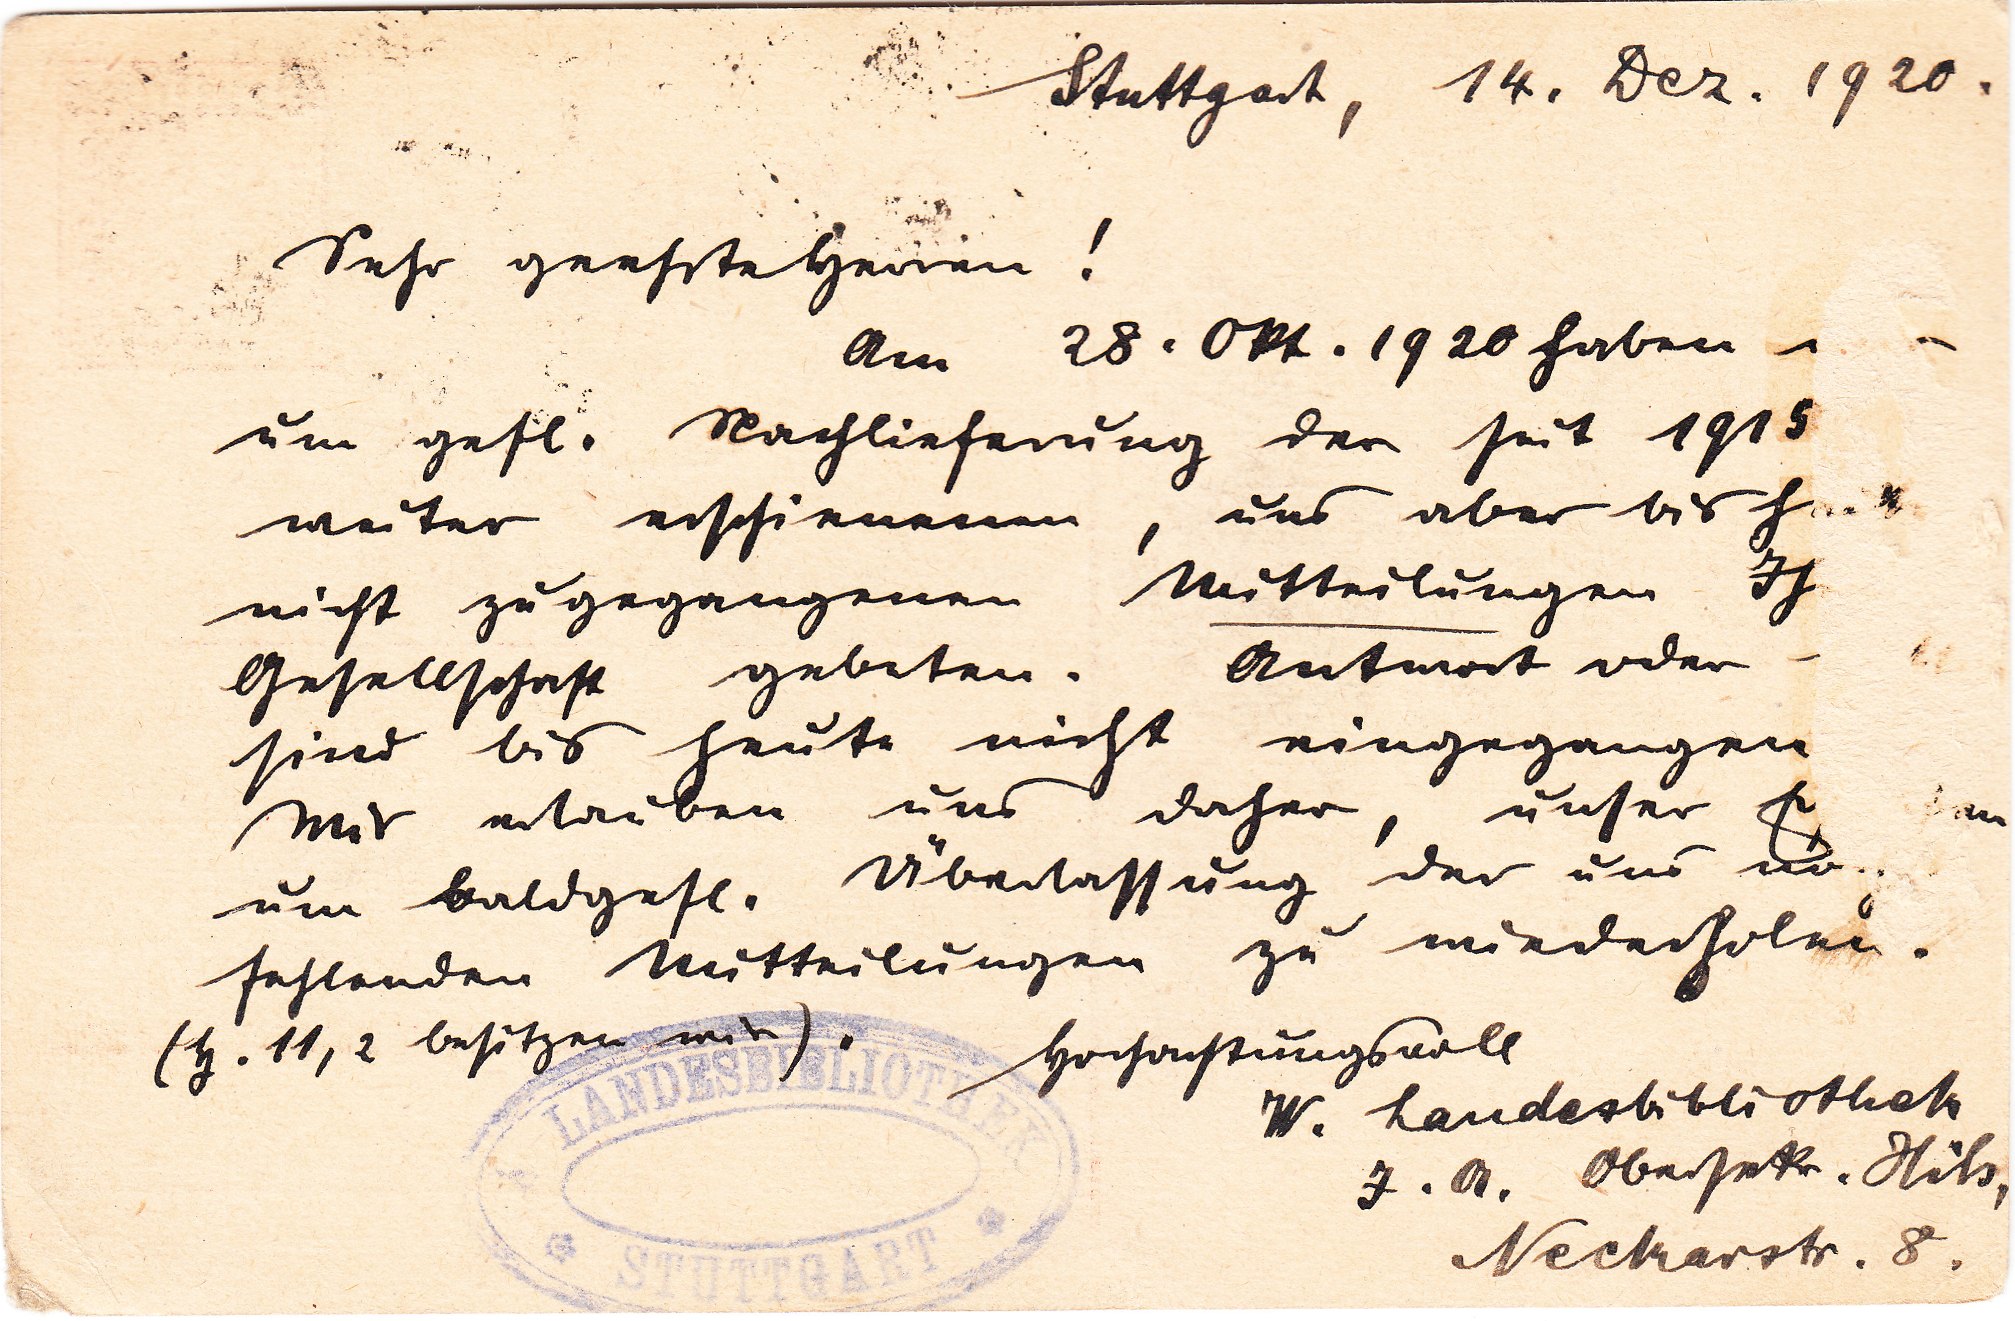 Stuttgart, 14. Dez. 1920.
Sehr geehrte Herren!
Am 28. Okt. 1920 haben
um gefl. Nachlieferung der seit 1915
weiter erschienenen, uns aber bis h
nicht zugegangenen Mitteilungen Ih
Gesellschaft gebeten. Antwort oder
sind bis heute nicht eingegangen
Wir erlauben uns daher, unser
um baldgefl. Überlassung der uns no
fehlenden Mitteilungen zu wiederholen.
(H. 11,2 besitzen wir).
Hochachtungsvoll
W. Landesbibliothek
I. A. Obersekr. Hils,
Neckarstr. 8.
LANDESBIBLIOTHEK
STUTTGART